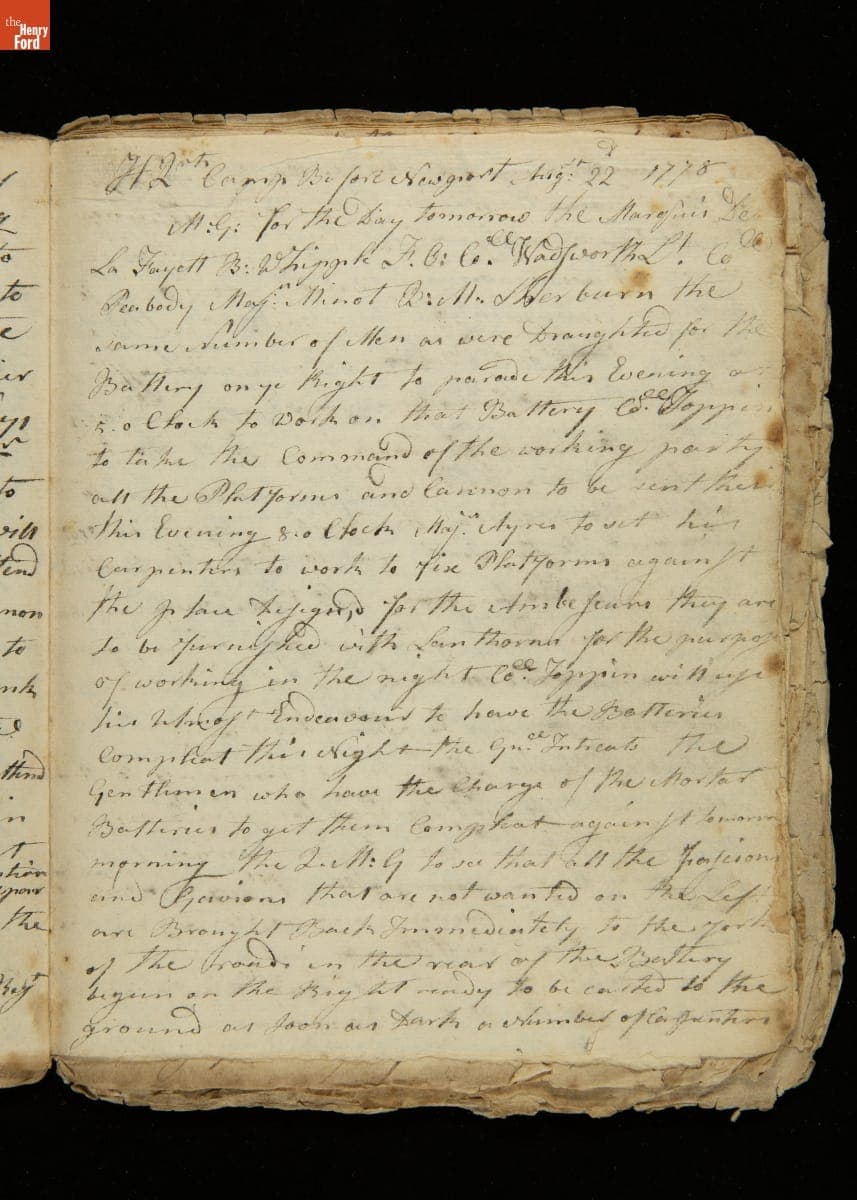 the
Henry
Ford
H Qrts Camp Before Newport Augst 22d 1778
M: G: for the Day tomorrow the Marquis De
La Fayett B: Whipple F. O: Coll Wadsworth Lt. Coll
Peabody Majr Minot B: M. Sherburn the
same Number of Men as were Draughted for the
Battery on ye Right to parade this Evening at
o Clock to Work on that Battery Coll Toppin
to take the Command of the working party
all the Platforms and Cannon to be sent their
this Evening 8 o Clock Majr Ayres to set his
Carpenters to work to fix Platforms against
the place Desigen,d for the Ambesears they are
to be furnished with Lanthorns for the purpos
of working in the night Coll Toppin will use
his Utmost Endeavour to have the Batteries
Compleat this Night the Gnll Intreats the
Gentlemen who have the Charge of the Mortar
Batteries to get them Compleat against tomorrow
morning the Q. M: G to see that all the Fasscions
and Gavions that are not wanted on the Left
are Brought Back Immediately to the fork
of the roads in the rear of the Battery
begun on the Right ready to be carted to the
ground as soon as Dark a Number of Carpenters
to
to
non
to
the
in
the